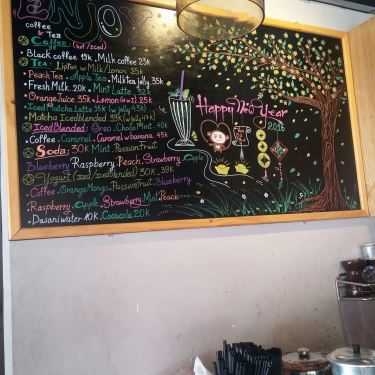 ENJOY
coffee
& Tea
Coffee (hot/iced)
• Black coffee 19K, Milk coffee 25K
Tea: Lipton w Milk/Lemon 35K
Peach Tea • Apple Tea • Milk tea jelly 35K
• Fresh Milk 20K • Mint Latte 32K
Orange Juice 35K • Lemon 25K
Iced Matcha Latte 35K
Matcha Iced blended
Iced Blended: Oreo, Choco Mint 49K
• Coffee, Caramel, Caramel w banana 45K
Soda: 30K Mint, Passion Fruit
Blueberry, Raspberry, Peach, Strawberry, Apple
Yogurt (iced/iced blended) 30K, 39K
Coffee, Orange, Mango, Passion Fruit, Blueberry
Raspberry, Apple, Strawberry, Mint, Peach
• Dasani water 10K, Cocacola 20K
Happy New Year
2016